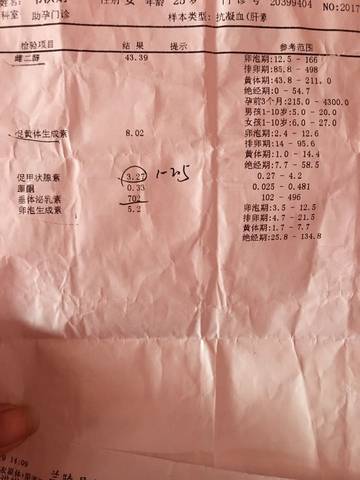 性别 女 年龄 25岁 门诊号 20399404 NO:2017
科室 助孕门诊 样本类型:抗凝血(肝素
检验项目 结 果 提示 参考范围
雌二醇 43.39 卵泡期:12.5 - 166
排卵期:85.8 - 498
黄体期:43.8 - 211.0
绝经期:0 - 54.7
孕前3个月:215.0 - 4300.0
男孩1-10岁:5.0 - 20.0
女孩1-10岁:6.0 - 27.0
促黄体生成素 8.02 卵泡期:2.4 - 12.6
排卵期:14 - 95.6
黄体期:1.0 - 14.4
绝经期:7.7 - 58.5
促甲状腺素 3.27 1-2.5 0.27 - 4.2
睾酮 0.33 0.025 - 0.481
垂体泌乳素 702 102 - 496
卵泡生成素 5.2 卵泡期:3.5 - 12.5
排卵期:4.7 - 21.5
黄体期:1.7 - 7.7
绝经期:25.8 - 134.8
14:09